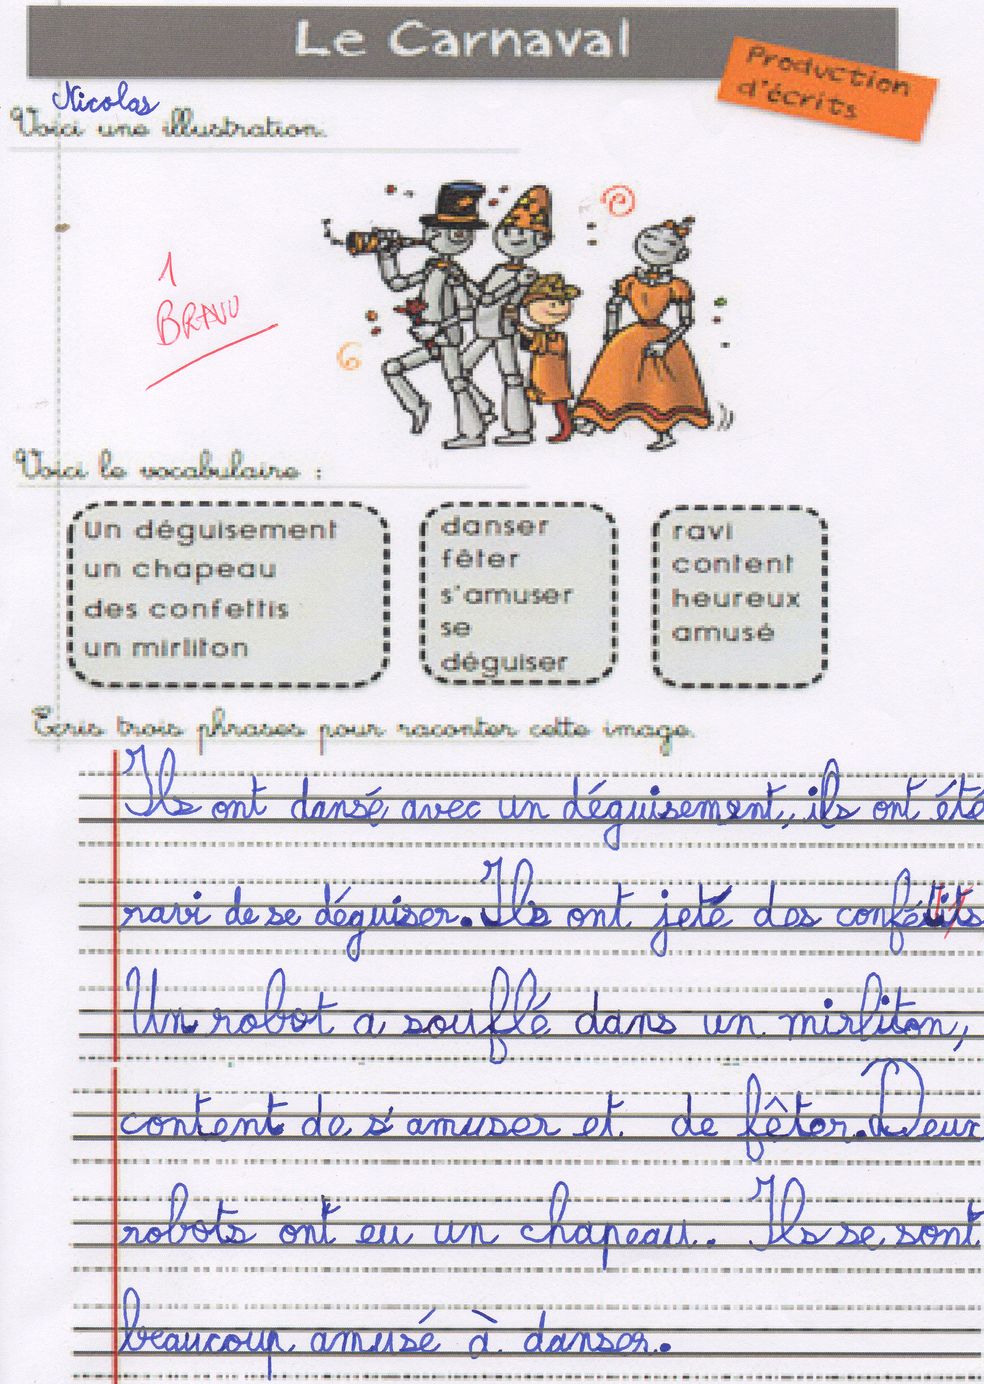 Le Carnaval
Production
d'écrits
Nicolas
Voici une illustration.
1
BRAVO
Voici le vocabulaire :
Un déguisement
un chapeau
des confettis
un mirliton
danser
fêter
s'amuser
se
déguiser
ravi
content
heureux
amusé
Ecris trois phrases pour raconter cette image.
Ils ont dansé avec un déguisement, ils ont été
ravi de se déguiser. Ils ont jeté des confétits
Un robot a soufflé dans un mirliton,
content de s'amuser et de fêter. Deux
robots ont eu un chapeau. Ils se sont
beaucoup amusé à danser.